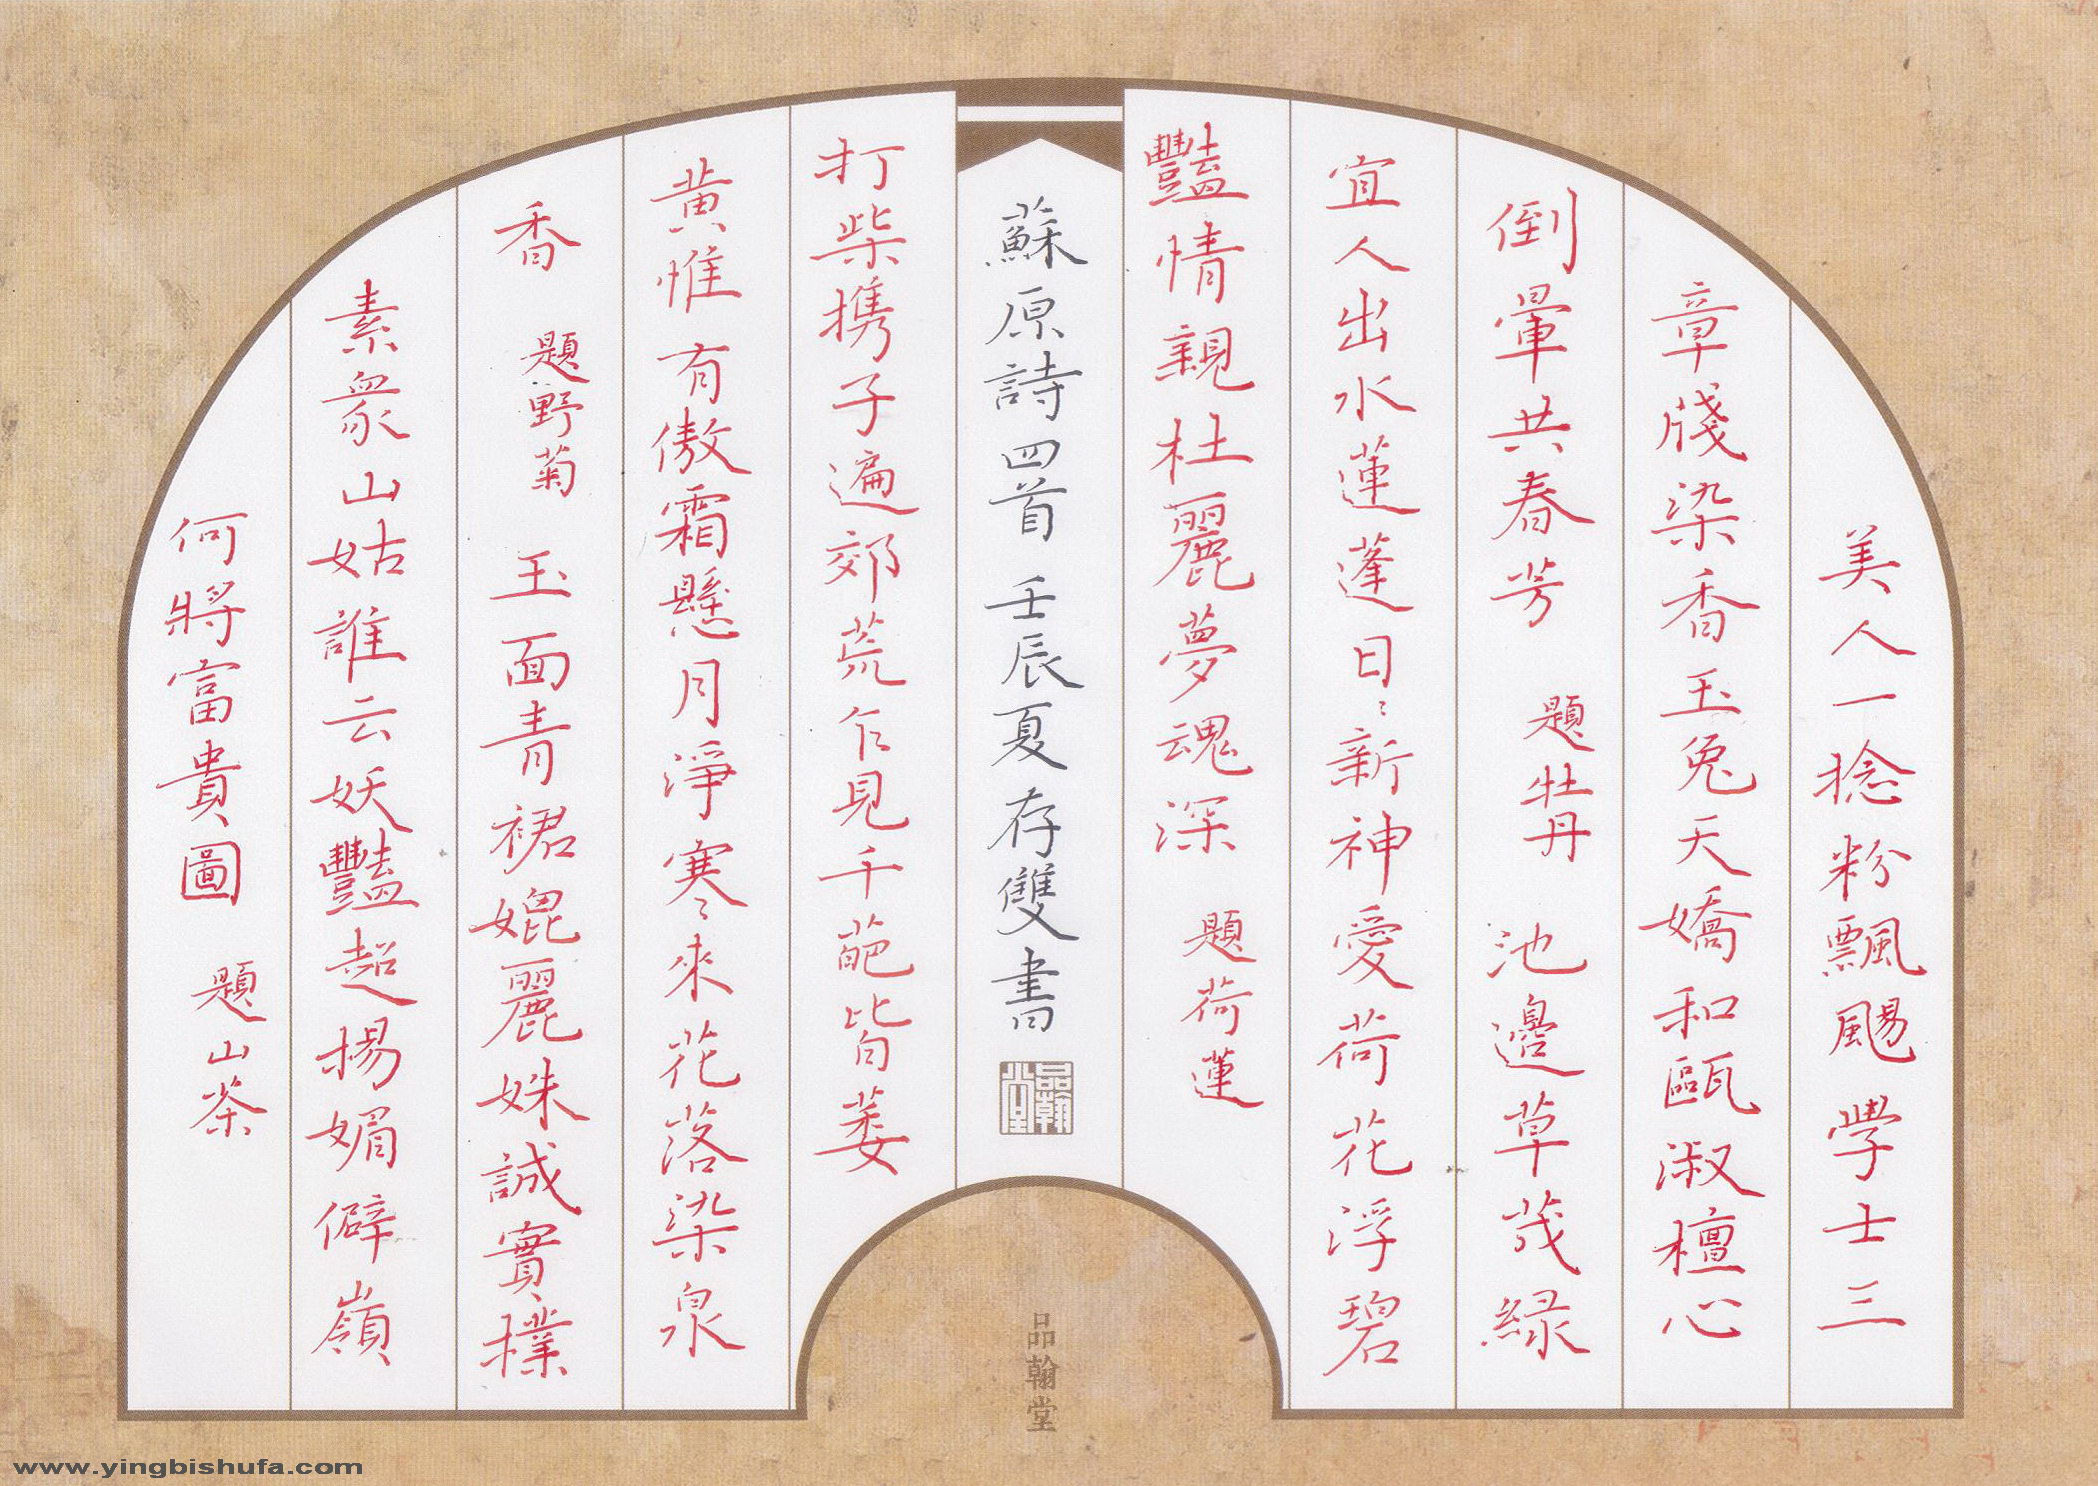 美人一捻粉飄颺學士三
章牋染香玉兔天嬌和甌淑檀心
倒暈共春芳 題牡丹 池邊草茂綠
宜人出水蓮蓬日〻新神愛荷花浮碧
豔情親杜麗夢魂深 題荷蓮
蘇原詩四首 壬辰夏存雙書
品翰堂
打柴攜子遍郊荒乍見千葩皆萎
黄惟有傲霜懸月淨寒〻來花落染泉
香 題野菊 玉面青裙媲麗姝誠實樸
素衆山姑誰云妖豔超楊媚僻嶺
何將富貴圖 題山茶
品翰堂
www.yingbishufa.com